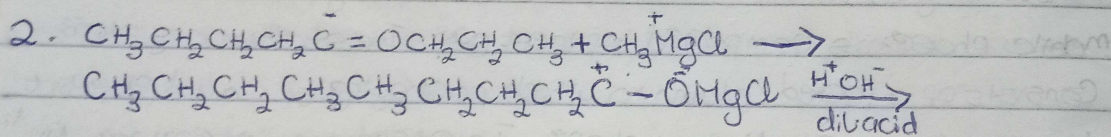 2. CH₃CH₂CH₂CH₂C̄ = OCH₂CH₂CH₃ + CH₃M⁺gCl →
CH₃CH₂CH₂CH₃CH₃CH₂CH₂CH₂C⁺ – ŌMgCl H⁺OH⁻ → dil acid